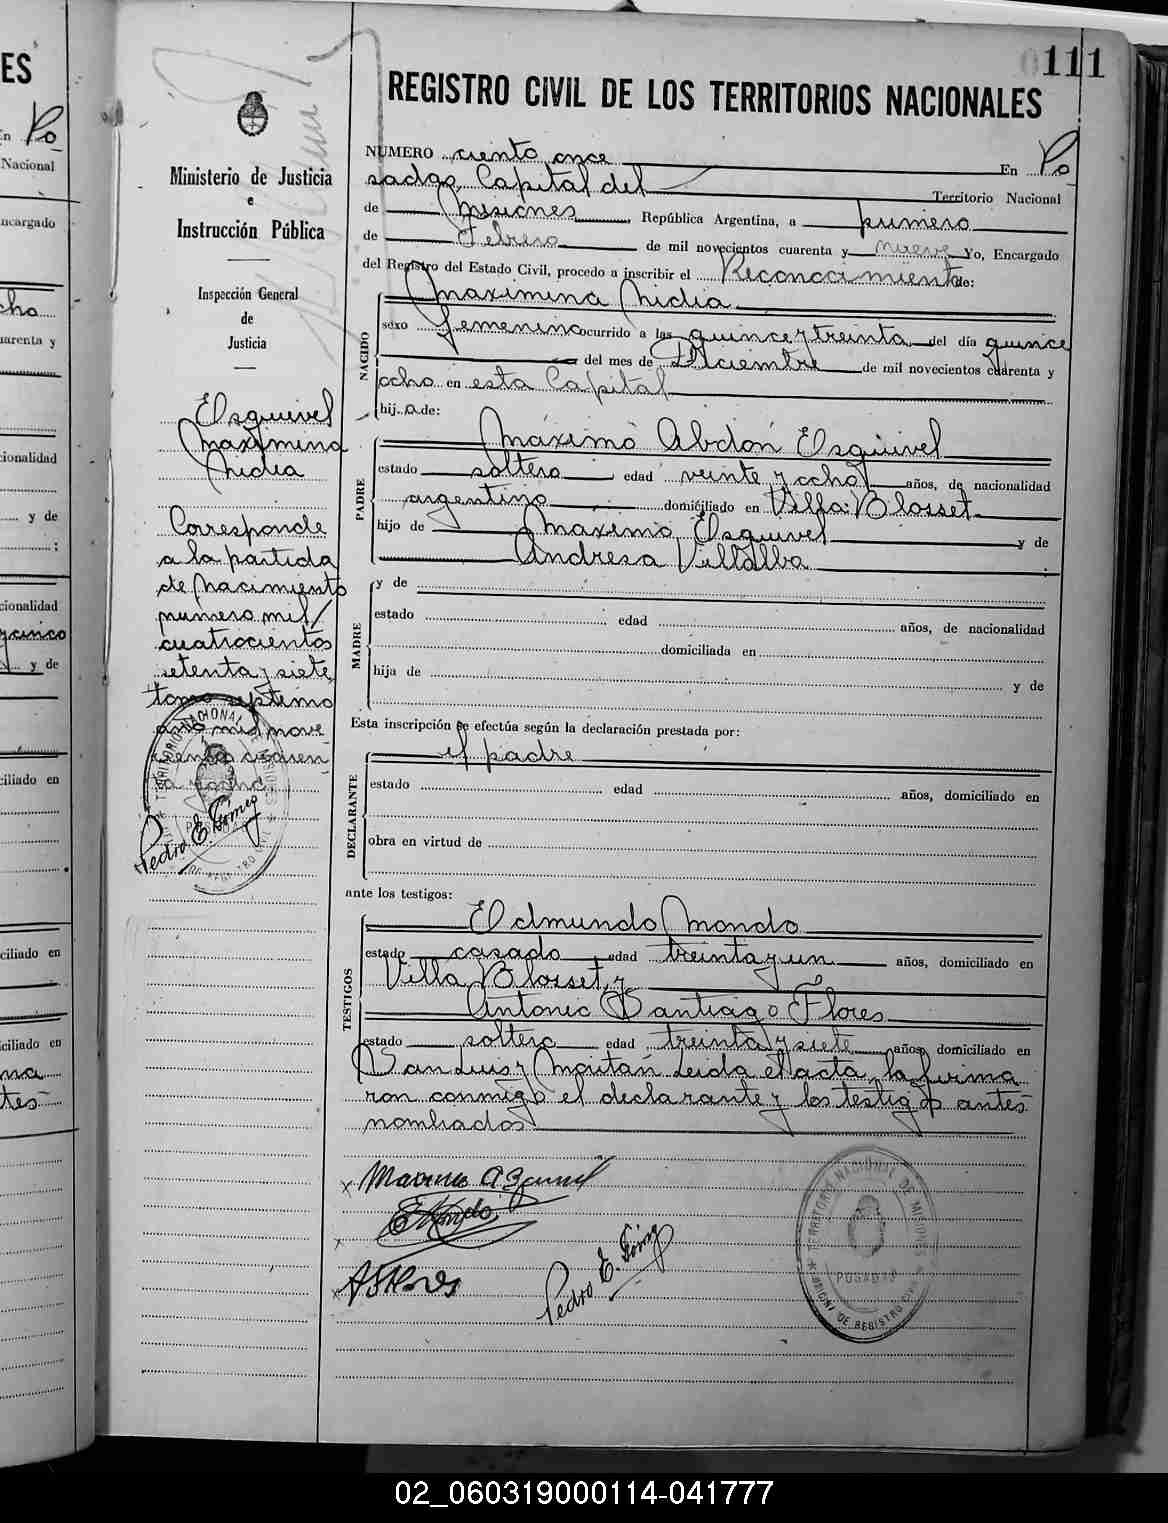 ES
111
REGISTRO CIVIL DE LOS TERRITORIOS NACIONALES
Ministerio de Justicia
e
Instrucción Pública
Inspección General
de
Justicia
Esquivel
Maximina
Nidia
Corresponde
a la partida
de Nacimiento
numero mil/
cuatrocientos
setenta y siete,
tomo septimo
año mil nove-
cientos cuaren-
ta y ocho
Pedro E. Gómez
NUMERO ciento once En Po
sadas, Capital del Territorio Nacional
de Misiones, República Argentina, a primero
de Febrero de mil novecientos cuarenta y nueve Yo, Encargado
del Registro del Estado Civil, procedo a inscribir el Reconocimiento de:
NACIDO
Maximina Nidia
sexo femenino ocurrido a las quince y treinta del día quince
del mes de Diciembre de mil novecientos cuarenta y
ocho en esta Capital
hij a de:
PADRE
Máximo Abdón Esquivel
estado soltero edad veinte y ocho años, de nacionalidad
argentino domiciliado en Villa Blosset
hijo de Maximo Esquivel y de
Andresa Villalba
MADRE
y de
estado edad años, de nacionalidad
domiciliada en
hija de y de
Esta inscripción se efectúa según la declaración prestada por:
DECLARANTE
el padre
estado edad años, domiciliado en
obra en virtud de
ante los testigos:
TESTIGOS
Edmundo Mondo
estado casado edad treinta y un años, domiciliado en
Villa Blosset, y
Antonio Santiago Flores
estado soltero edad treinta y siete años, domiciliado en
San Luis y Maitán Leida el acta, la firma
ron conmigo el declarante y los testigos antes
nombrados
Pedro E. Gómez
TERRITORIO NACIONAL DE MISIONES
POSADAS
OFICINA DE REGISTRO CIVIL
02_060319000114-041777